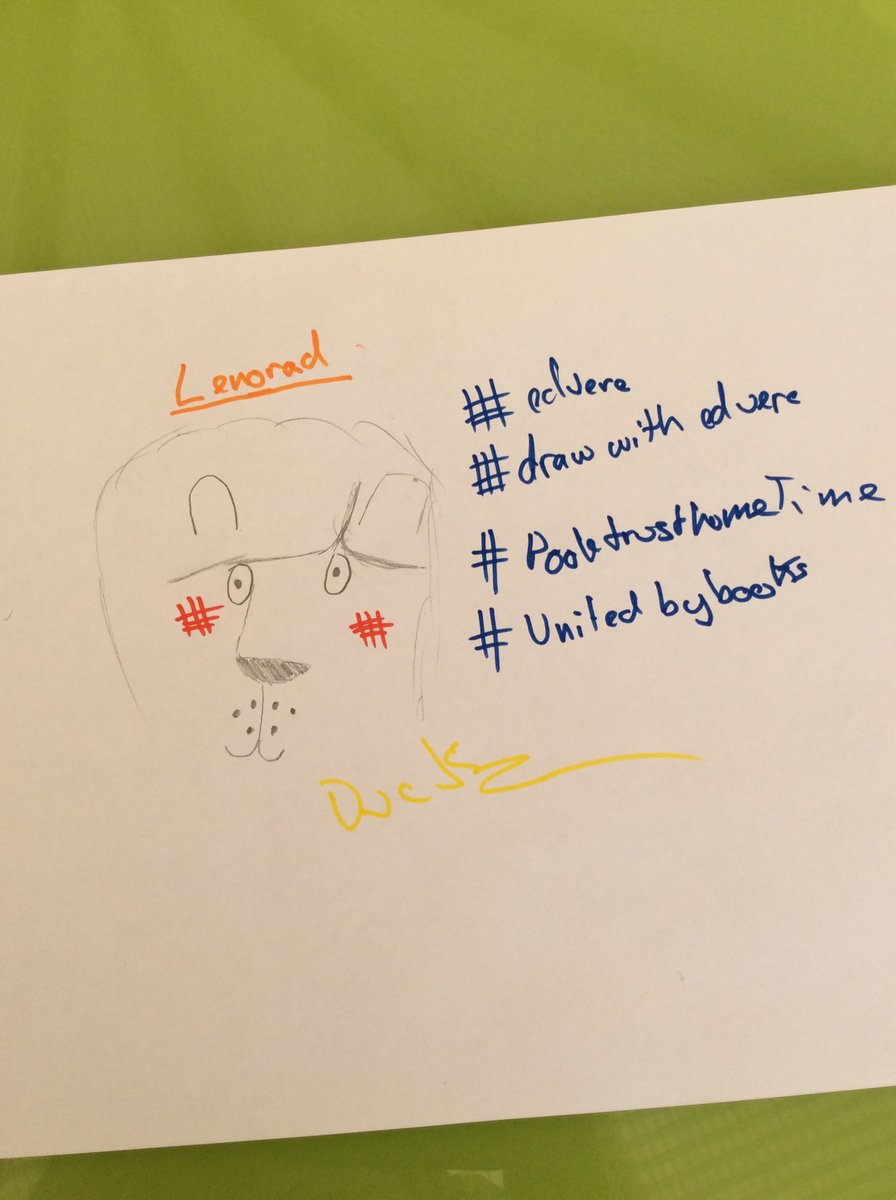 Lenorad
# edvere
# draw with edvere
# PooletrusthomeTime
# United bybooks
Duck